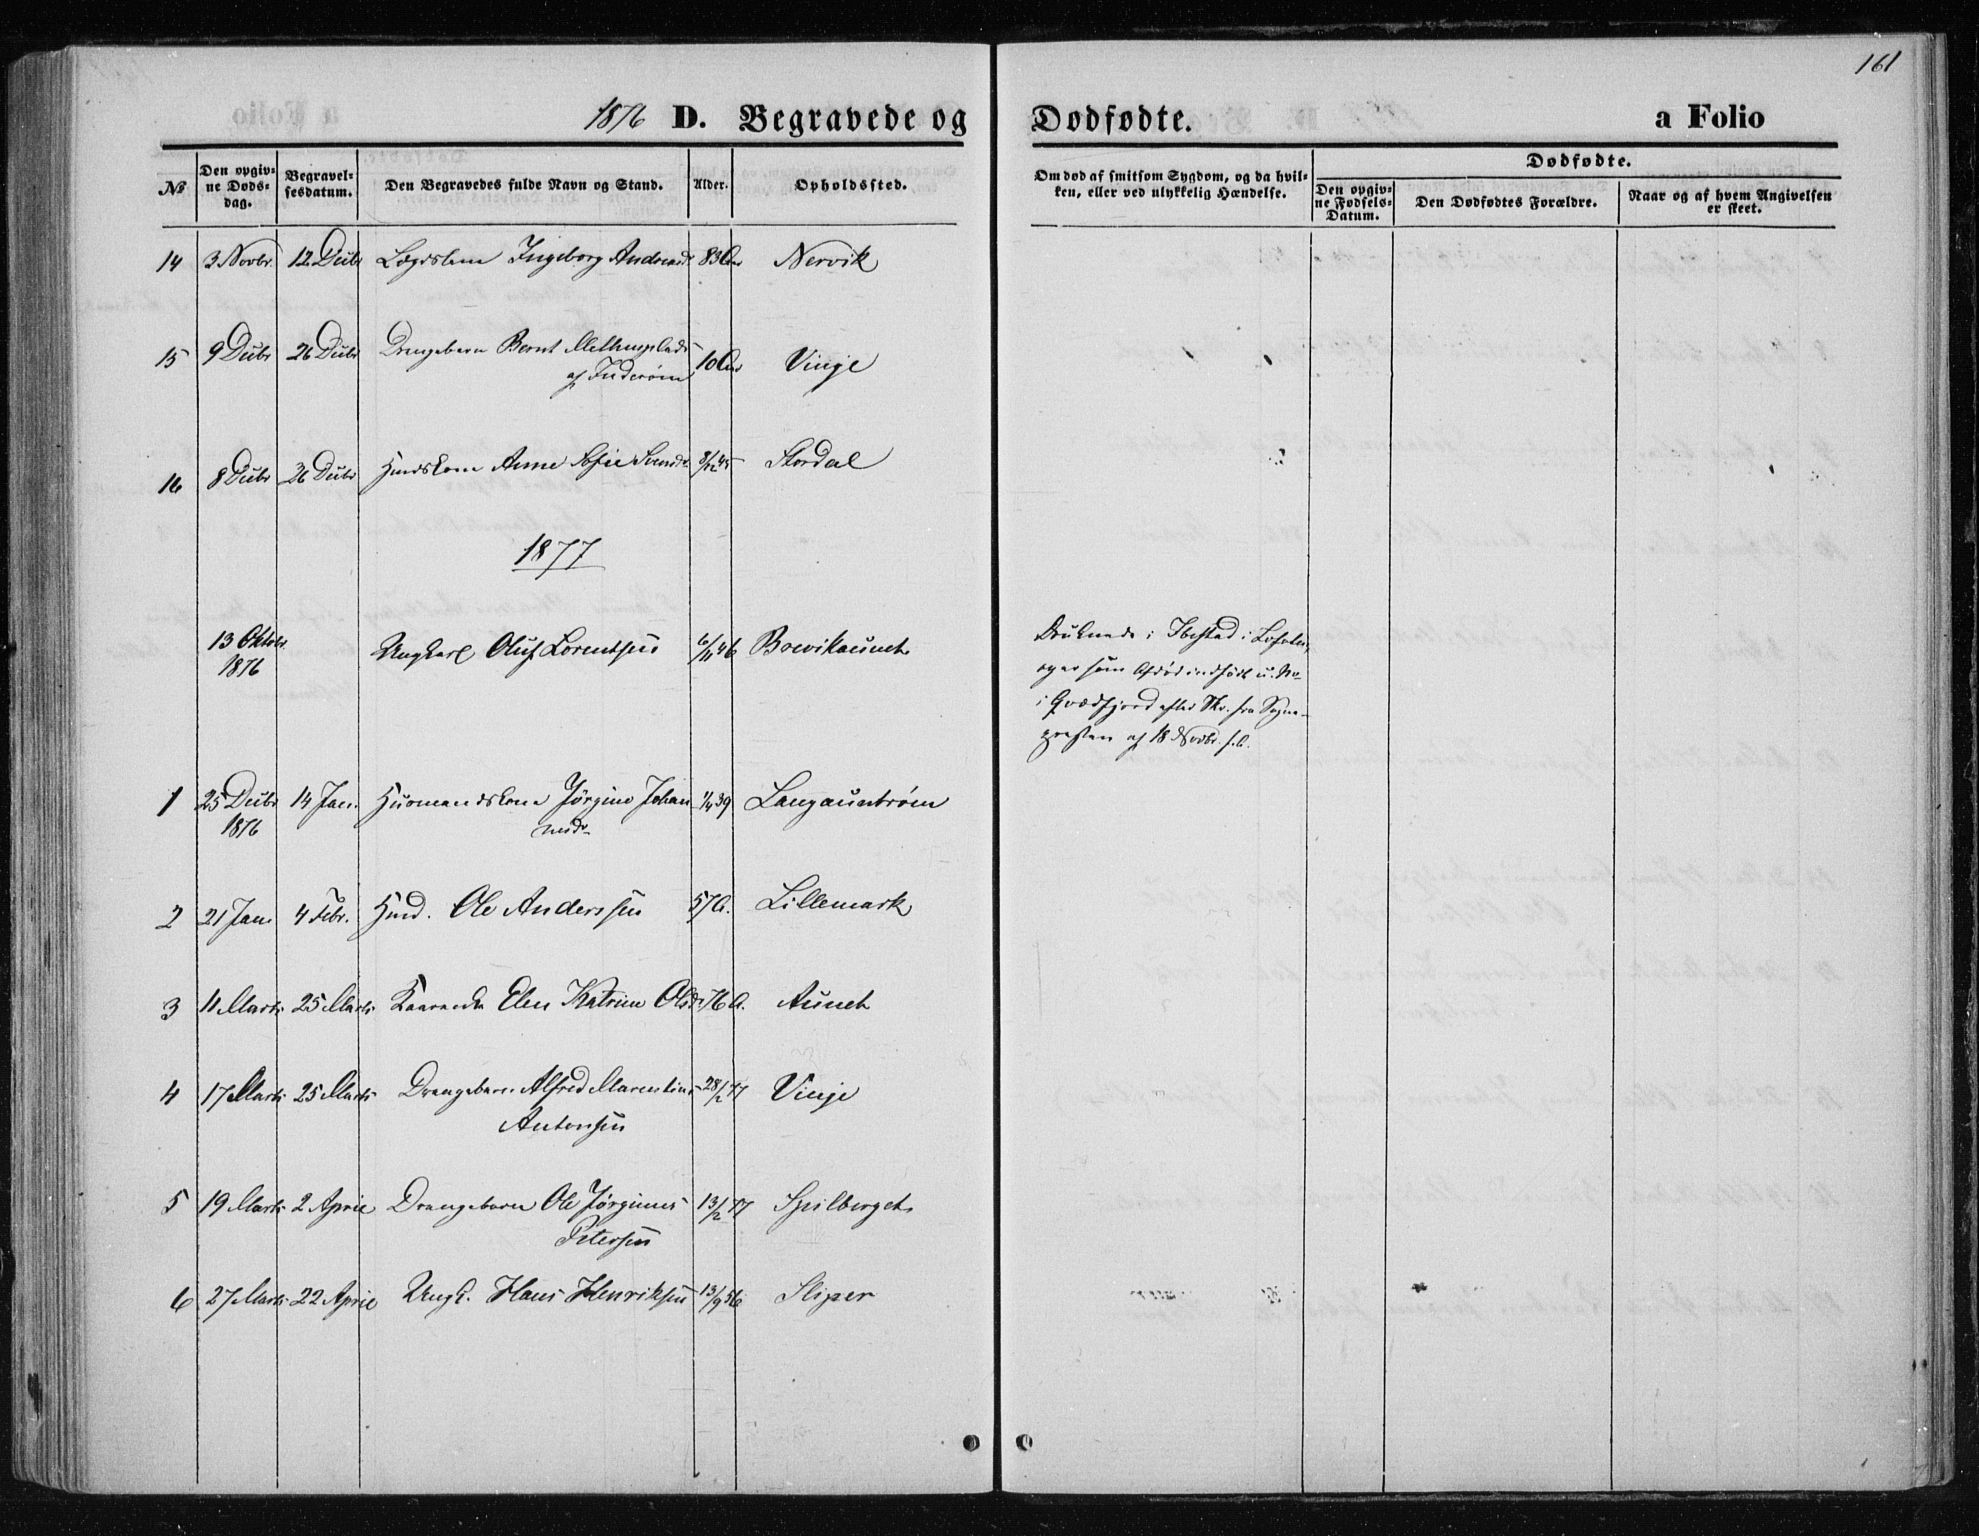 161
1876 D. Begravede og Dødfødte. a Folio
No
Den opgiv-
ne Døds-
dag.
Begravel-
sesdatum.
Den Begravedes fulde Navn og Stand.
Alder.
Opholdssted.
Om død af smitsom Sygdom, og da hvil-
ken, eller ved ulykkelig Hændelse.
Dødfødte.
Den opgiv-
ne Fødsels-
Datum.
Den Dødfødtes Forældre.
Naar og af hvem Angivelsen
er skeet.
14 3 Novbr. 12 Decbr Lægdslem Ingeborg Andreasd. 83 Aar Nervik
15 9 Decbr 26 Decbr Drengebarn Bernt 10 Aar Vinje
af Inderøen
16 8 Decbr 26 Decbr Hmdskone Anne Sofie 8/12 45 Stordal
1877
13 Oktobr. Ungkarl Oluf Lorentsen 6/11 46 Brevikaunet
1876
Druknede i Ibestad i
og er som Afdød indført u. No
i Qvædfjord efter Skr. fra Sogne-
presten af 18 Novbr. f.A.
1 25 Decbr 14 Jan. Husmandskone Jørgine Johan 1/4 39 Langauntrøen
1876 nesd.
2 21 Jan. 4 Febr. Hmd. Ole Anderssen 57 A. Lillemark
3 11 Marts 25 Marts Kaarenke Elen Katrine Olsd. 76 A. Aunet
4 17 Marts 25 Marts Drengebarn Alfred Marentius 28/2 77 Vinje
Antonsen
5 19 Marts 2 April Drengebarn Ole Jørginus 13/2 77 Spilberget
Petersen
6 27 Marts 22 April Ungk. Hans Henriksen 13/9 56 Sliper